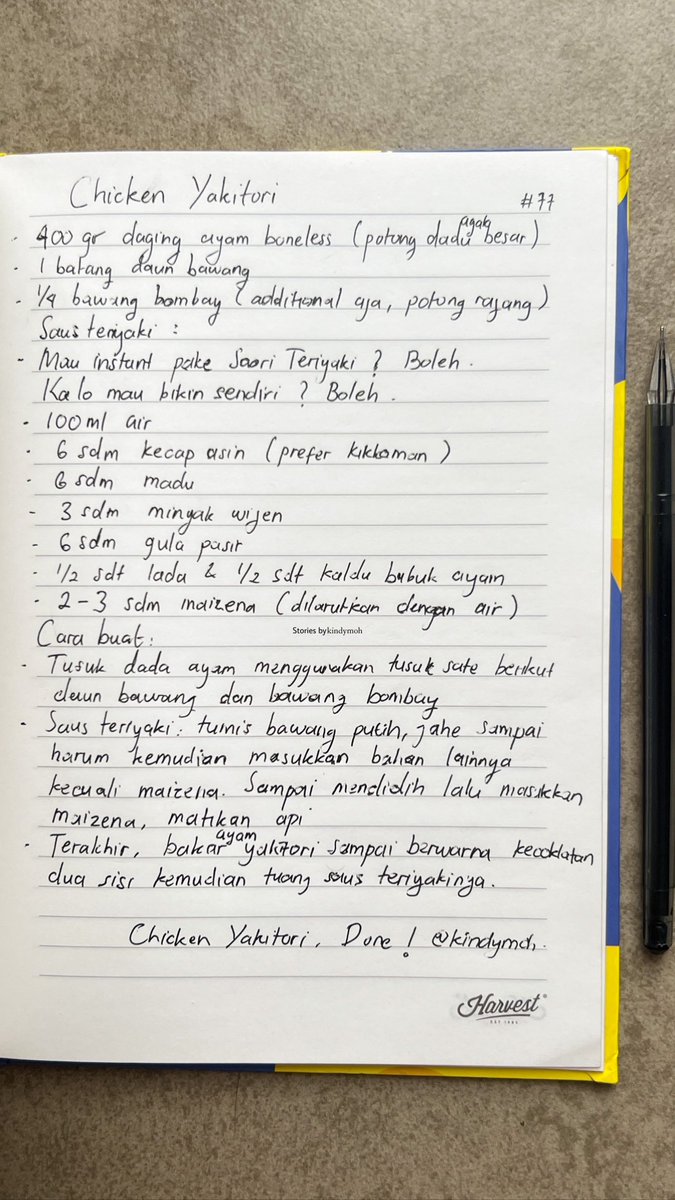 Chicken Yakitori #77
- 400 gr daging ayam boneless (potong dadu agak besar)
- 1 batang daun bawang
- 1/4 bawang bombay (additional aja, potong rajang)
Saus teriyaki :
- Mau instant pake Saori Teriyaki ? Boleh.
Kalo mau bikin sendiri ? Boleh.
- 100 ml air
- 6 sdm kecap asin (prefer kikkoman)
- 6 sdm madu
- 3 sdm minyak wijen
- 6 sdm gula pasir
- 1/2 sdt lada & 1/2 sdt kaldu bubuk ayam
- 2-3 sdm maizena (dilarutkan dengan air)
Stories by kindymoh
Cara buat:
- Tusuk dada ayam menggunakan tusuk sate berikut
daun bawang dan bawang bombay
- Saus teriyaki: tumis bawang putih, jahe sampai
harum kemudian masukkan bahan lainnya
kecuali maizena. Sampai mendidih lalu masukkan
maizena, matikan api
- Terakhir, bakar ayam yakitori sampai berwarna kecoklatan
dua sisi kemudian tuang saus teriyakinya.
Chicken Yakitori, Done! @kindymoh.
Harvest
EST 1981